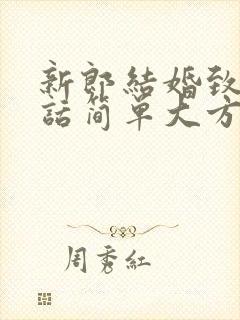 新郎結婚致
話简單大方
周秀紅